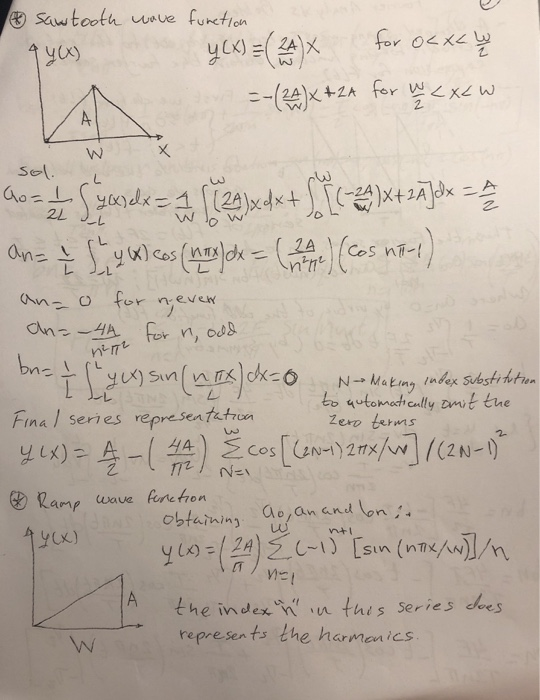 ⊛ Sawtooth wave function
y(x) y(x) = (2A/W)x for 0<x<W/2
= -(2A/W)x+2A for W/2 <x<W
A
W x
sol.
a₀ = 1/2L ∫_{-L}^{L} y(x)dx = 1/W ∫_0^W (2A/W)x dx + ∫_0^W [(-2A/W)x+2A]dx = A/2
an = 1/L ∫_{-L}^{L} y(x) cos(nπx/L)dx = (2A/n²π²)(cos nπ-1)
an = 0 for n, even
an = -4A/n²π² for n, odd
bn = 1/L ∫_{-L}^{L} y(x) sin(nπx/L)dx = 0 N→ Making index substitution
to automatically omit the
Final series representation zero terms
y(x) = A/2 - (4A/π²) Σ_{N=1}^{∞} cos[(2N-1)2πx/W]/(2N-1)²
⊛ Ramp wave function
obtaining a₀, an and bn ∴
y(x) y(x) = (2A/π) Σ_{n=1}^{∞} (-1)^{n+1} [sin(nπx/W)]/n
A the index "n" in this series does
W represents the harmonics.